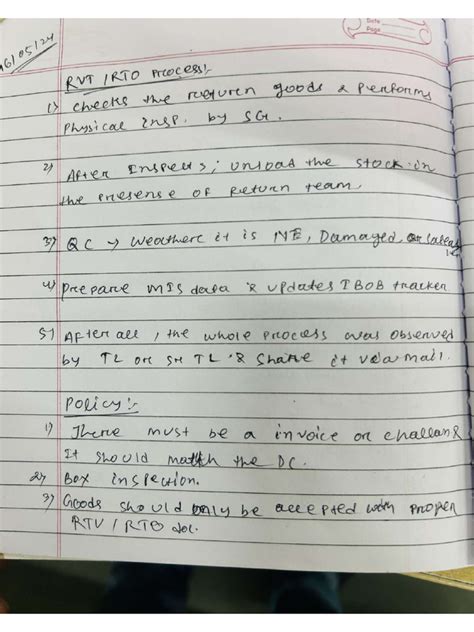 Date
Page
16/05/24
RVT / RTO Process:-
1) Checks the return goods & Performs
Physical insp. by SG.
2) After Inspects, unload the stock in
the presense of Return team.
3) QC → Weathere it is NE, Damaged, or
4) Prepare MIS data & updates IBOB tracker
5) After all, the whole process was observed
by TL or Sr TL & Share it via mail.
Policy:-
1) There must be a invoice or challan &
It should match the DC.
2) Box inspection.
3) Goods should only be accepted with proper
RTV / RTO doc.